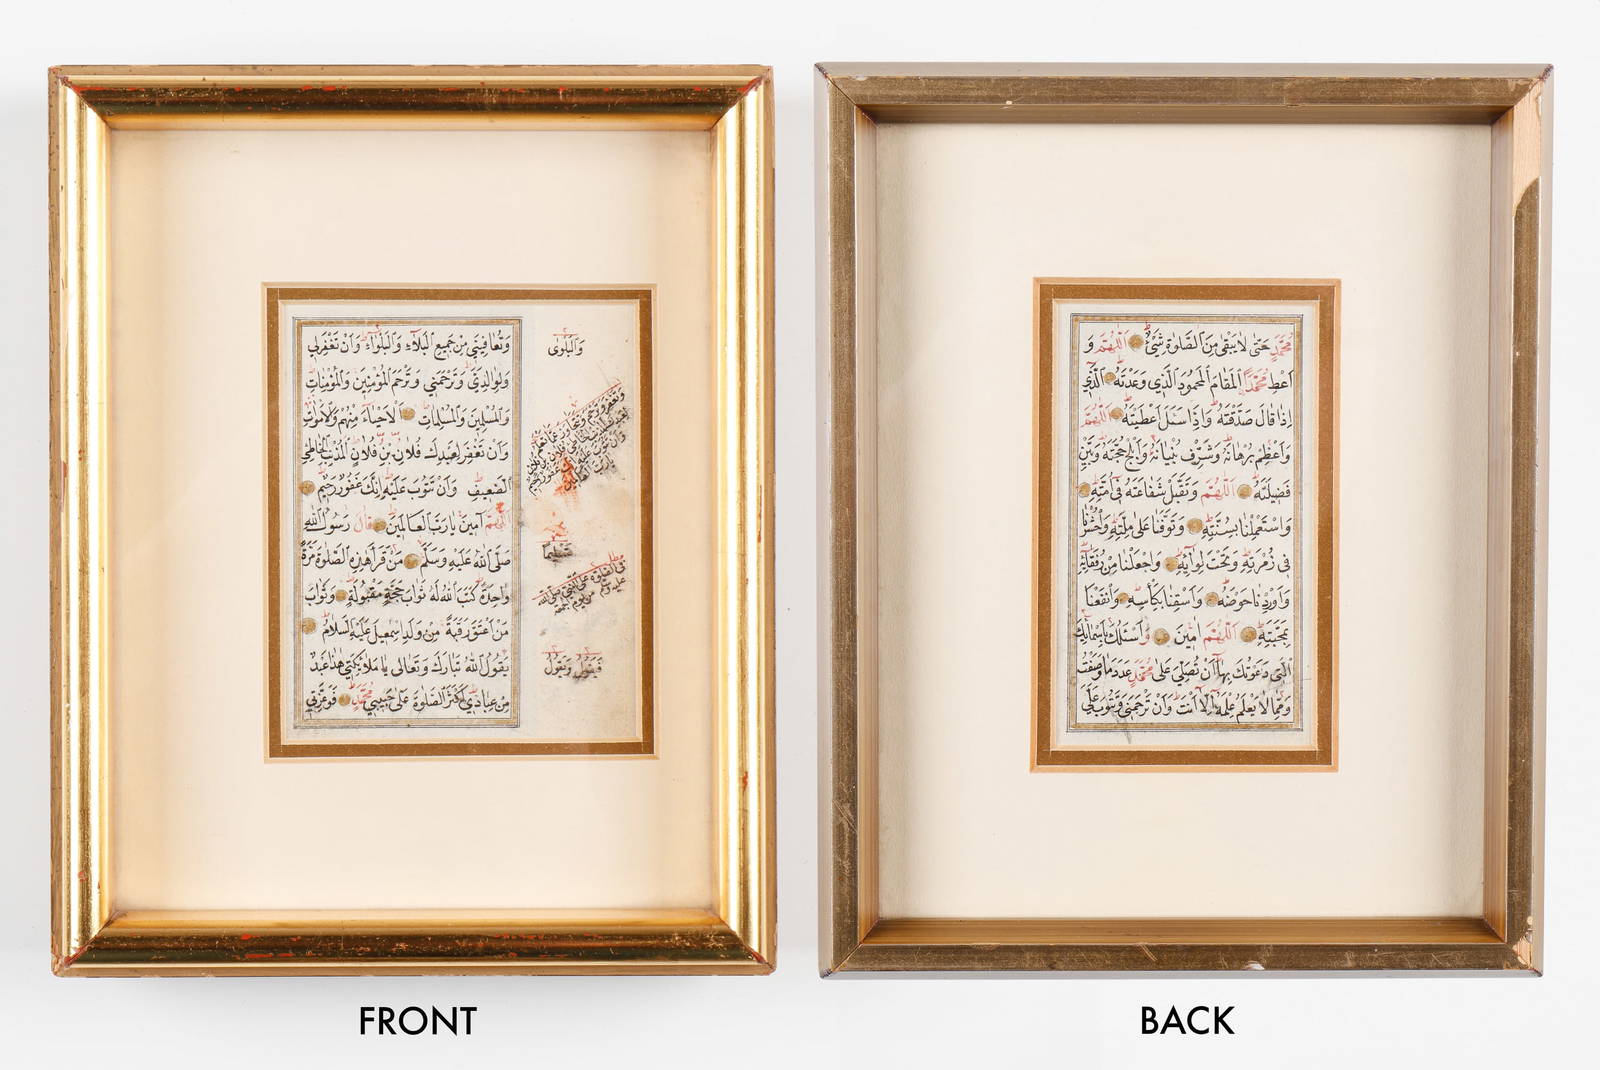 وَتُعَافِيَنِي مِنْ جَمِيعِ الْبَلَاءِ وَالْبَلْوَاءِ وَاَنْ تَغْفِرَ لِي
وَلِوَالِدَيَّ وَتَرْحَمَنِي وَتَرْحَمَ الْمُؤْمِنِينَ وَالْمُؤْمِنَاتِ
وَالْمُسْلِمِينَ وَالْمُسْلِمَاتِ الْاَحْيَاءِ مِنْهُمْ وَالْاَمْوَاتِ
وَاَنْ تَغْفِرَ لِعَبْدِكَ فُلَانِ بْنِ فُلَانٍ الْمُذْنِبِ الْخَاطِئِ
الضَّعِيفِ وَاَنْ تَتُوبَ عَلَيْهِ اِنَّكَ غَفُورٌ رَحِيمٌ
اَللّٰهُمَّ آمِينَ يَا رَبَّ الْعَالَمِينَ قَالَ رَسُولُ اللّٰهِ
صَلَّى اللّٰهُ عَلَيْهِ وَسَلَّمَ مَنْ قَرَاَ هٰذِهِ الصَّلٰوةَ مَرَّةً
وَاحِدَةً كَتَبَ اللّٰهُ لَهُ ثَوَابَ حَجَّةٍ مَقْبُولَةٍ وَثَوَابَ
مَنْ اَعْتَقَ رَقَبَةً مِنْ وَلَدِ اِسْمٰعِيلَ عَلَيْهِ السَّلَامُ
يَقُولُ اللّٰهُ تَبَارَكَ وَتَعَالٰى يَا مَلَائِكَتِي هٰذَا عَبْدٌ
مِنْ عِبَادِي اَكْثَرَ الصَّلٰوةَ عَلٰى حَبِيبِي مُحَمَّدٍ فَوَعِزَّتِي
وَالْبَلْوٰى
تَسْلِيمًا
فَيَقُولُ وَيَقُولُ
مُحَمَّدٍ حَتّٰى لَا يَبْقٰى مِنَ الصَّلٰوةِ شَيْءٌ اَللّٰهُمَّ وَ
اَعْطِ مُحَمَّدًا الْمَقَامَ الْمَحْمُودَ الَّذِي وَعَدْتَهُ الَّذِي
اِذَا قَالَ صَدَّقْتَهُ وَاِذَا سَئَلَ اَعْطَيْتَهُ اَللّٰهُمَّ
وَاَعْظِمْ بُرْهَانَهُ وَشَرِّفْ بُنْيَانَهُ وَاَبْلِجْ حُجَّتَهُ وَبَيِّنْ
فَضِيلَتَهُ اَللّٰهُمَّ وَتَقَبَّلْ شَفَاعَتَهُ فِي اُمَّتِهِ
وَاسْتَعْمِلْنَا بِسُنَّتِهِ وَتَوَفَّنَا عَلٰى مِلَّتِهِ وَاحْشُرْنَا
فِي زُمْرَتِهِ وَتَحْتَ لِوَائِهِ وَاجْعَلْنَا مِنْ رُفَقَائِهِ
وَاَوْرِدْنَا حَوْضَهُ وَاسْقِنَا بِكَأْسِهِ وَانْفَعْنَا
بِمَحَبَّتِهِ اَللّٰهُمَّ اٰمِينَ وَاَسْئَلُكَ بِاَسْمَائِكَ
الَّتِي دَعَوْتُكَ بِهَا اَنْ تُصَلِّيَ عَلٰى مُحَمَّدٍ عَدَدَ مَا وَصَفْتُ
وَمِمَّا لَا يَعْلَمُ عِلْمَهُ اِلَّا اَنْتَ وَاَنْ تَرْحَمَنِي وَتَتُوبَ عَلَيَّ
FRONT
BACK